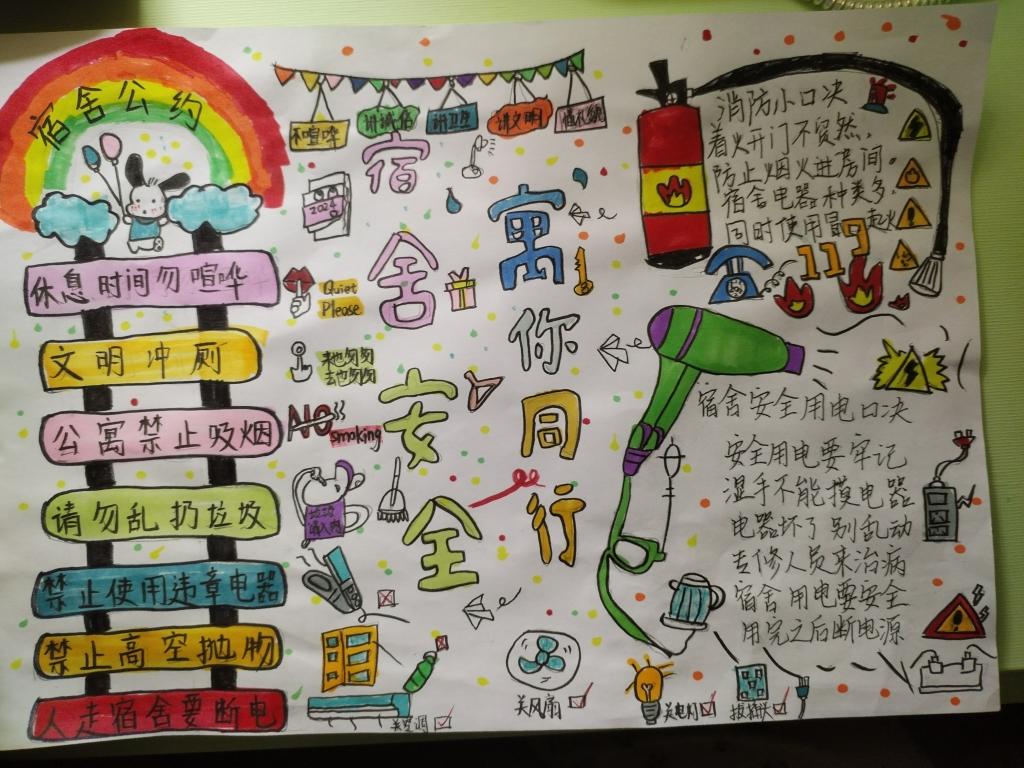 宿舍公约
休息时间勿喧哗
文明冲厕
公寓禁止吸烟
请勿乱扔垃圾
禁止使用违章电器
禁止高空抛物
人走宿舍要断电
不喧哗
讲诚信
讲卫生
讲文明
2024
Quiet
Please
来也匆匆
去也匆匆
NO
smoking
宿舍安全
寓你同行
关空调
关风扇
关电灯
拔插头
消防小口决
着火开门不贸然,
防止烟火进房间。
宿舍电器种类多,
同时使用冒起火
119
宿舍安全用电口决
安全用电要牢记
湿手不能摸电器
电器坏了别乱动
专修人员来治病
宿舍用电要安全
用完之后断电源